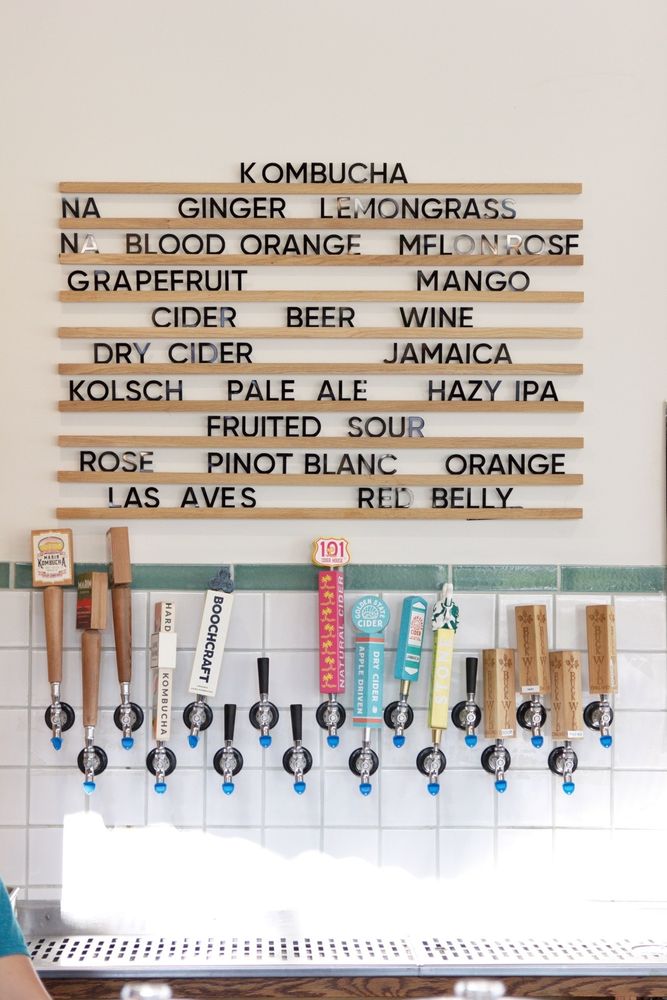 KOMBUCHA
NA GINGER LEMONGRASS
NA BLOOD ORANGE MELON ROSE
GRAPEFRUIT MANGO
CIDER BEER WINE
DRY CIDER JAMAICA
KOLSCH PALE ALE HAZY IPA
FRUITED SOUR
ROSE PINOT BLANC ORANGE
LAS AVES RED BELLY
MARIN
KOMBUCHA
MARIN
HARD
KOMBUCHA
BOOCHCRAFT
101
CIDER HOUSE
NATURAL CIDER
GOLDEN STATE
CIDER
DRY CIDER
APPLE DRIVEN
BREW
BREW
BREW
BREW